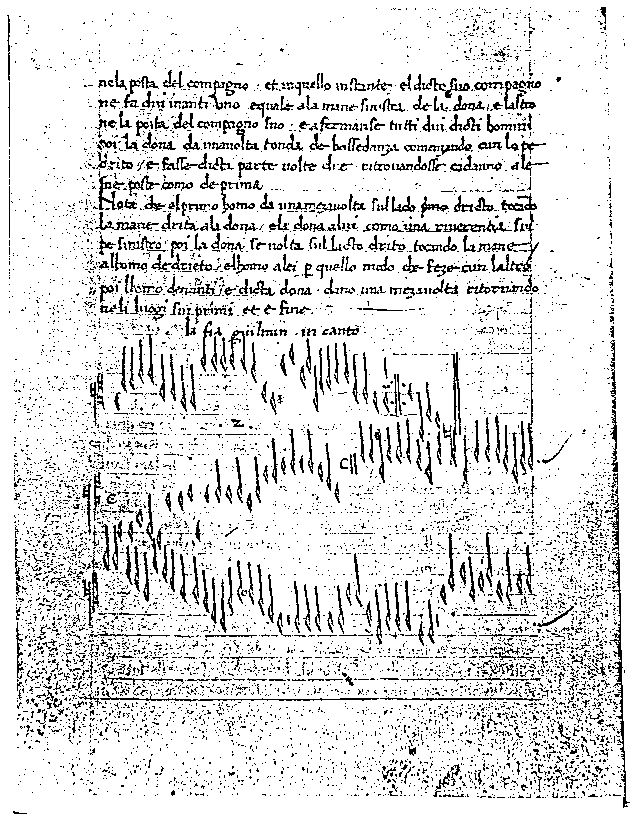 nela posta del compagno · et inquello instante el dicto suo compagno
ne fa dui inanti uno equale ala mane sinistra de la dona, e laltro
ne la posta del compagno suo · e afermanse tutti dui dicti homini
poi la dona da una volta tonda de bassedanza comenzando cun lo pe
drito / e fasse dicta parte volte dre ritrovandosse cadauno ale
sue poste como de prima
Nota che el primo homo da una meza volta sul lado suo dricto tocando
la mane drita ala dona / ela dona alui como una riverentia sul
pe sinistro poi la dona se volta sul lado drito tocando la mane
alhomo de drieto / elhomo alei p quello modo che feze cun laltro
poi lhomo denanti / e dicta dona dano una meza volta ritornando
neli luogi sui primi et e fine
la fia guilmin in canto